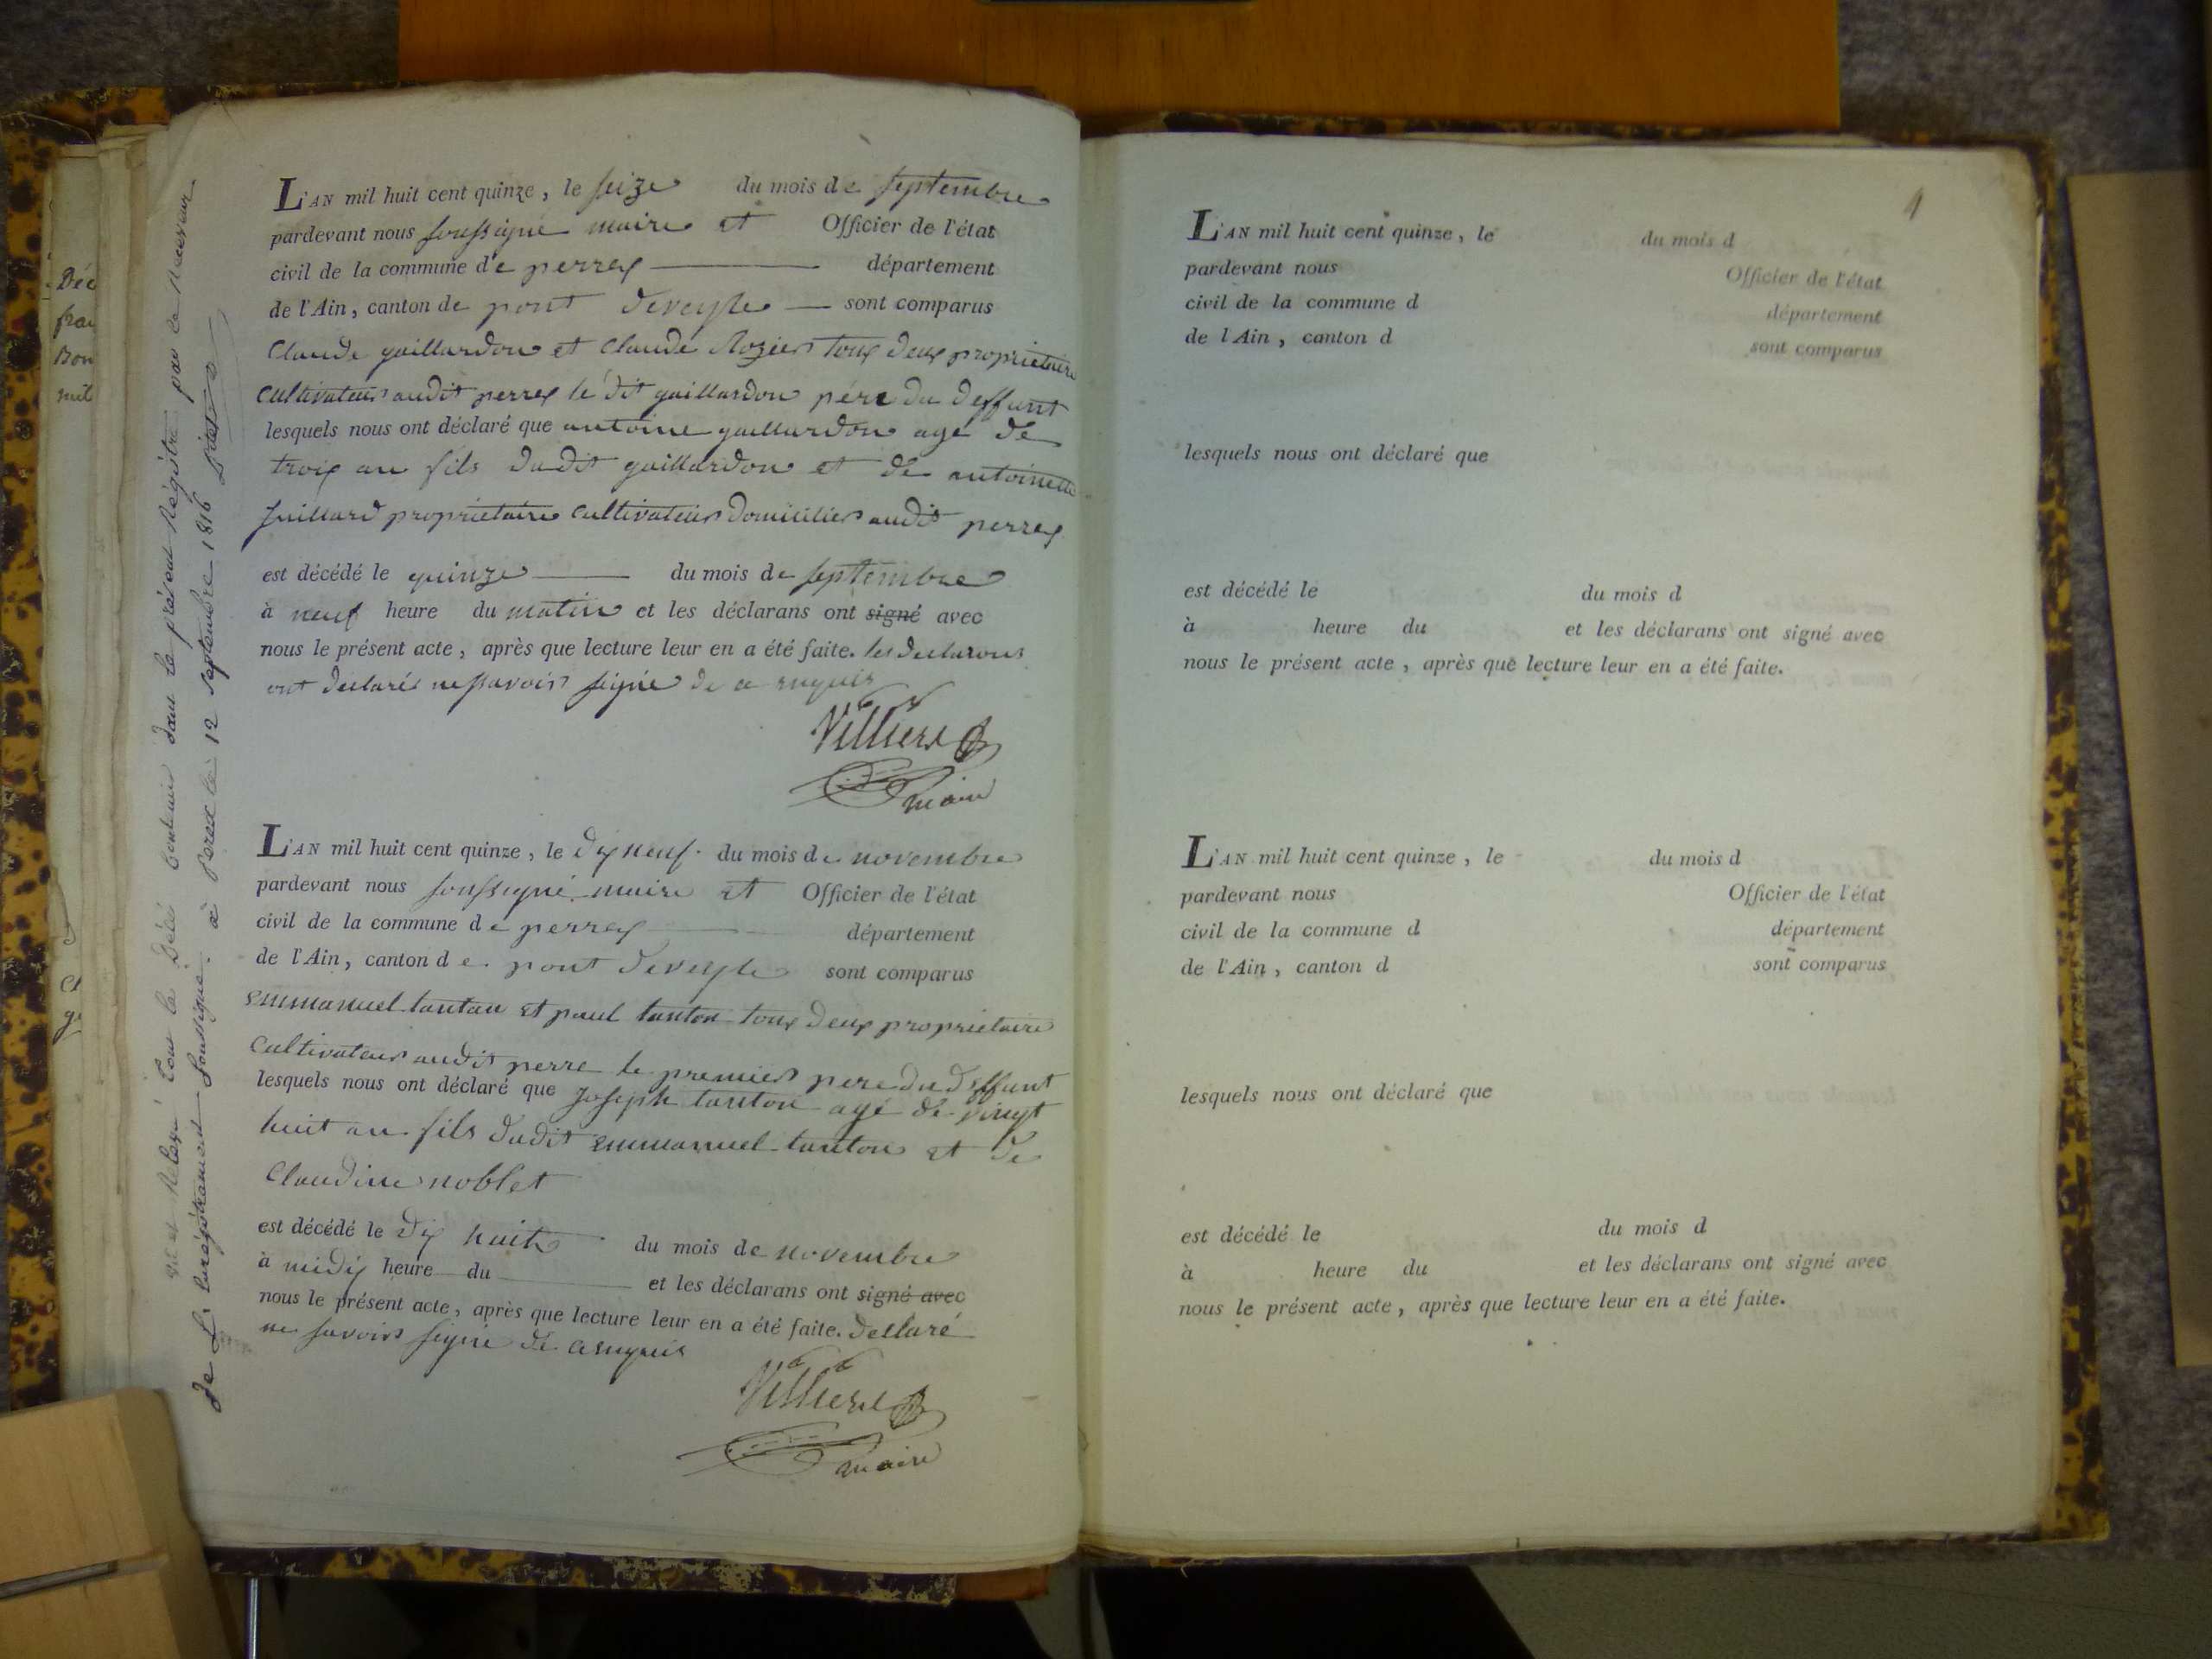 L'AN mil huit cent quinze, le seize du mois de septembre
pardevant nous soussigné maire et Officier de l'état
civil de la commune de perrex département
de l'Ain, canton de pont deveyle sont comparus
Claude gaillardon et Claude Rozier tous deux proprietaire
cultivateur audit perrex le dit gaillardon père du deffunt
lesquels nous ont déclaré que antoine gaillardon agé de
trois an fils dudit gaillardon et de antoinette
juillard proprietaire cultivateur domicilier audit perrex
est décédé le quinze du mois de septembre
à neuf heure du matin et les déclarans ont signé avec
nous le présent acte, après que lecture leur en a été faite. les declarans
ont declaré ne savoir signé de ce enquis
Villiers
maire
L'AN mil huit cent quinze, le dix neuf du mois de novembre
pardevant nous soussigné maire et Officier de l'état
civil de la commune de perrex département
de l'Ain, canton de pont deveyle sont comparus
emmanuel tanton et paul tanton tous deux proprietaire
cultivateur audit perre le premier pere du deffunt
lesquels nous ont déclaré que joseph tanton agé de vingt
huit an fils dudit emmanuel tanton et de
Claudine noblet
est décédé le dix huit du mois de novembre
à midy heure du et les déclarans ont signé avec
nous le présent acte, après que lecture leur en a été faite. declaré
ne savoir signé de ce enquis
Villiers
maire
par le Receveur
de l'enregistrement soussigné. à 12 septembre 1816
Déc
Bon
1
L'AN mil huit cent quinze, le du mois d
pardevant nous Officier de l'état
civil de la commune d département
de l'Ain, canton d sont comparus
lesquels nous ont déclaré que
est décédé le du mois d
à heure du et les déclarans ont signé avec
nous le présent acte, après que lecture leur en a été faite.
L'AN mil huit cent quinze, le du mois d
pardevant nous Officier de l'état
civil de la commune d département
de l'Ain, canton d sont comparus
lesquels nous ont déclaré que
est décédé le du mois d
à heure du et les déclarans ont signé avec
nous le présent acte, après que lecture leur en a été faite.